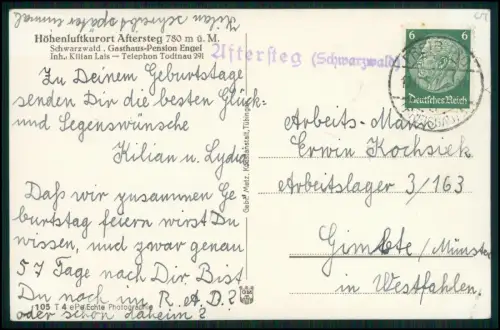 Kilian schreibt später einmal
Höhenluftkurort Aftersteg 780 m ü. M.
Schwarzwald. Gasthaus-Pension Engel
Inh. Kilian Lais — Telephon Todtnau 291
Zu Deinem Geburtstage
senden Dir die besten Glück-
und Segenswünsche
Kilian u. Lydia
Daß wir zusammen Ge
burtstag feiern wirst Du
wissen, und zwar genau
57 Tage nach Dir. Bist
Du noch im R.A.D.?
oder schon daheim?
105 T 4 Echte Photographie
Gebr. Metz, Kunstanstalt, Tübingen
Aftersteg (Schwarzwald)
6 6
Deutsches Reich
Arbeits-Mann
Erwin Kochsiek
Arbeitslager 3/163
Gimbte/Münster
in Westfahlen.